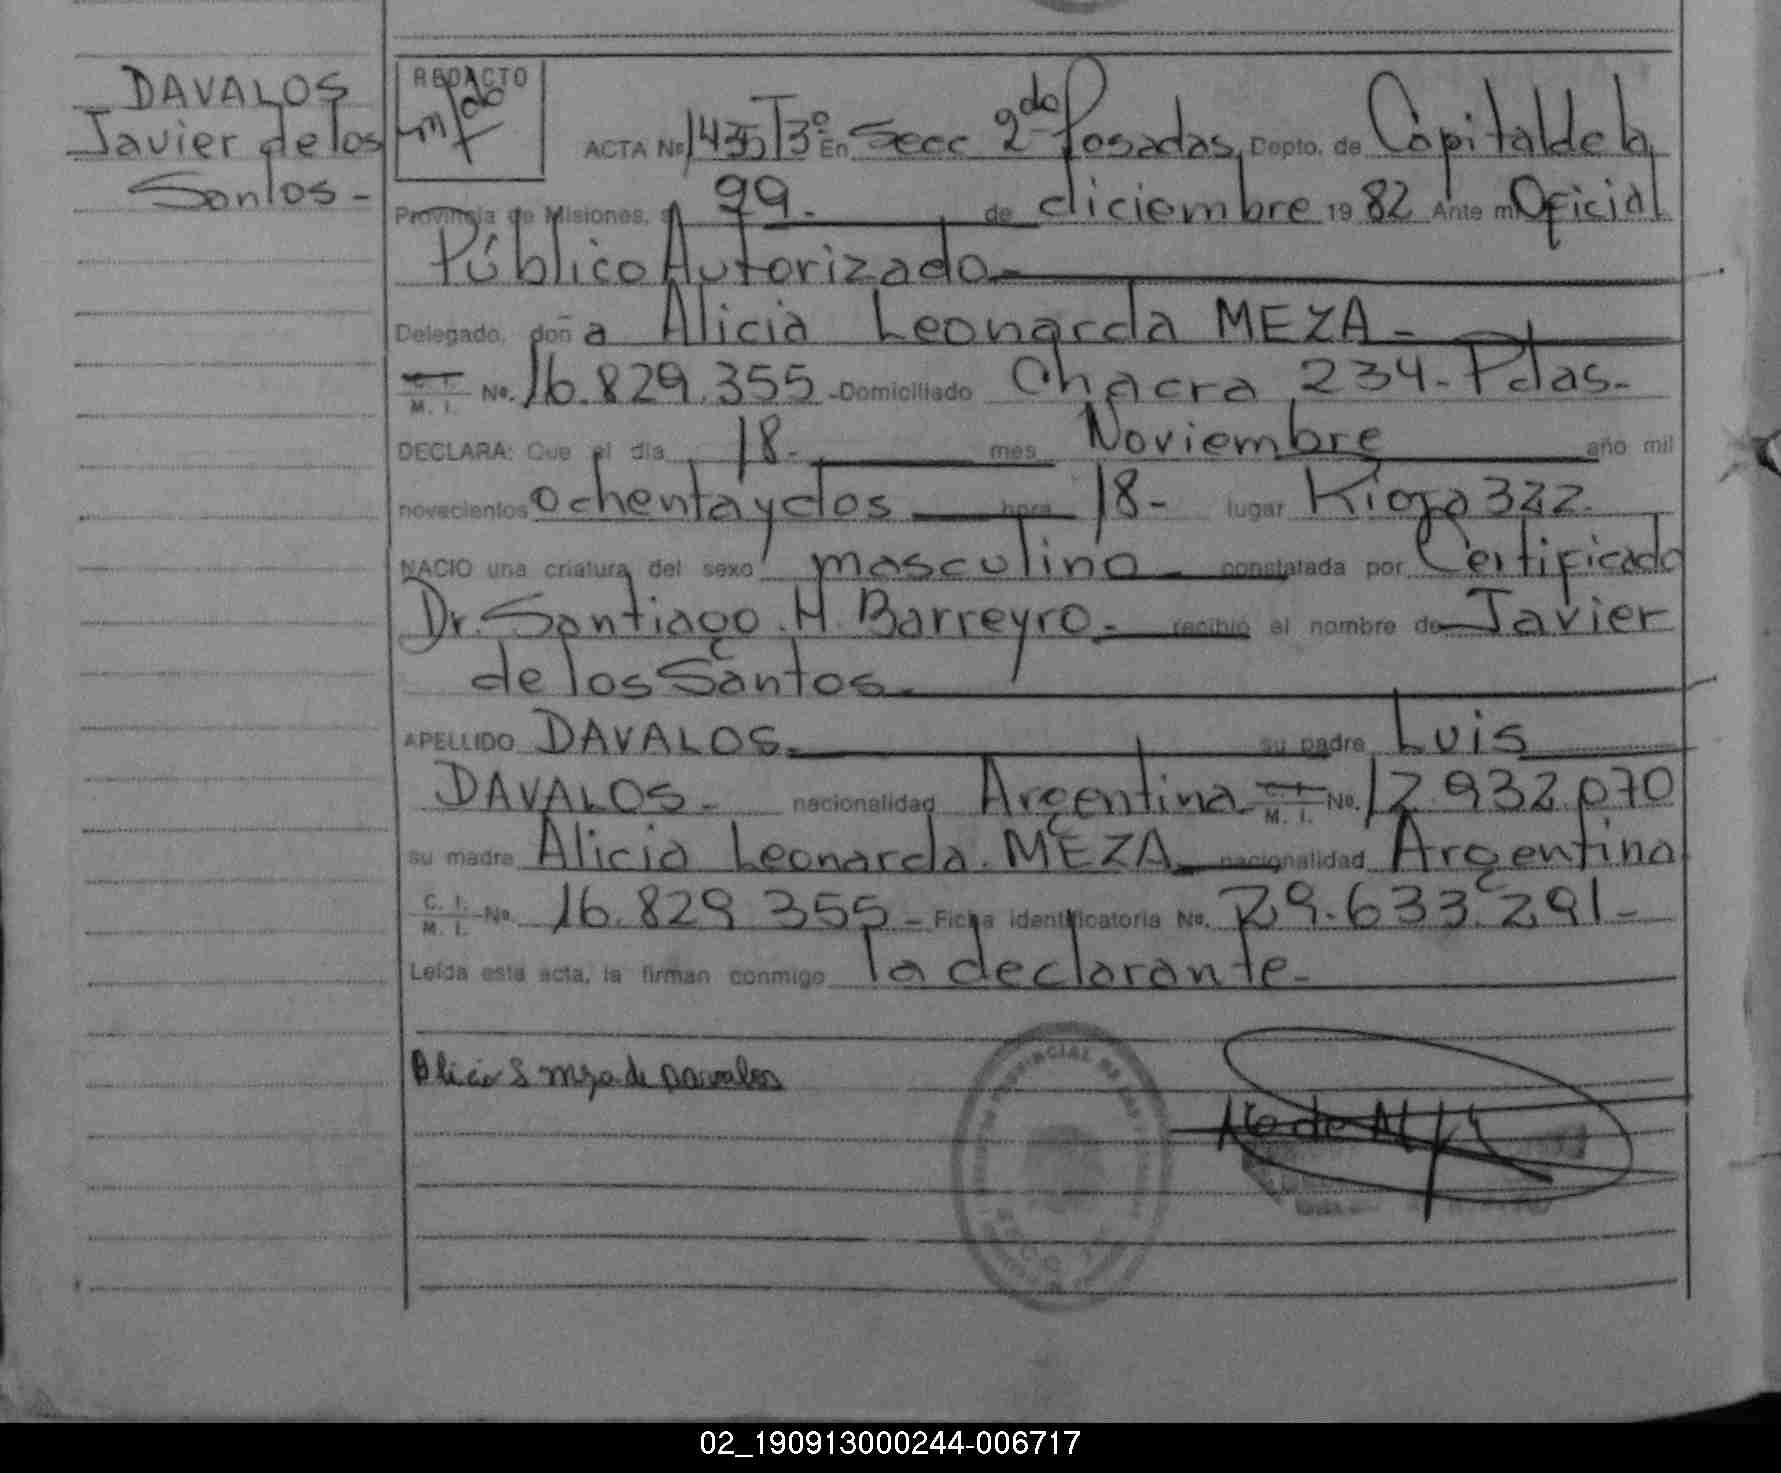 DAVALOS
Javier de los
Santos -
REDACTO
ACTA Nº 1435 T3º En Secc 2do Posadas, Depto. de Capital de la
Provincia de Misiones, a 29. de diciembre 19 82 Ante mi Oficial
Público Autorizado.-
Delegado, doñ a Alicia Leonarda MEZA -
M. I. No. 16.829.355 - Domiciliado Chacra 234 - Pdas.-
DECLARA: Que el día 18 - mes Noviembre año mil
novecientos ochenta y dos hora 18 - lugar Rioja 322.
NACIO una criatura del sexo masculino - constatada por Certificado
Dr. Santiago. H. Barreyro - recibió el nombre de Javier
de los Santos.
APELLIDO DAVALOS. su padre Luis
DAVALOS - nacionalidad Argentina - M. I. No. 12.932.070
su madre Alicia Leonarda. MEZA - nacionalidad Argentina
C. I. M. I. No. 16.829 355 - Ficha identificatoria No. 29.633.291 -
Leída esta acta, la firman conmigo la declarante -
Alicia L meza de Davalos
02_190913000244-006717